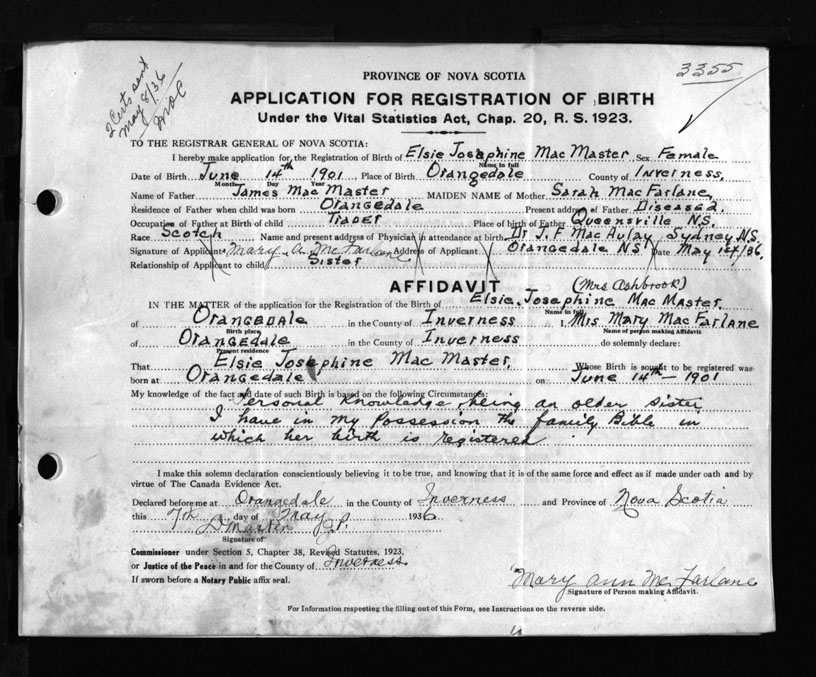 2 Certs sent
May 8/36
3355
PROVINCE OF NOVA SCOTIA
APPLICATION FOR REGISTRATION OF BIRTH
Under the Vital Statistics Act, Chap. 20, R. S. 1923.
TO THE REGISTRAR GENERAL OF NOVA SCOTIA:
I hereby make application for the Registration of Birth of Elsie Josephine Mac Master, Sex Female
Name in full
Date of Birth June 14th 1901 Place of Birth Orangedale County of Inverness,
Month Day Year
Name of Father James Mac Master MAIDEN NAME of Mother Sarah Mac Farlane,
Residence of Father when child was born Orangedale Present address of Father Diseased.
Occupation of Father at Birth of child Trader Place of birth of Father Queensville N.S.
Race Scotch Name and present address of Physician in attendance at birth Dr J. F Mac Aulay Sydney N.S.
Signature of Applicant Mary A. McFarlane Address of Applicant Orangedale N.S. Date May 1st/36,
Relationship of Applicant to child Sister
AFFIDAVIT (Mrs Ashbrook)
IN THE MATTER of the application for the Registration of the Birth of Elsie, Josephine Mac Master,
Name in full
of Orangedale in the County of Inverness I, Mrs Mary Mac Farlane
Birth place Name of person making Affidavit
of Orangedale in the County of Inverness do solemnly declare:
Present residence
That Elsie Josephine Mac Master, Whose Birth is sought to be registered was
born at Orangedale on June 14th - 1901
My knowledge of the fact and date of such Birth is based on the following Circumstances:
Personal Knowledge, being an older sister
I have in my Possession the family Bible in
which her birth is registered
I make this solemn declaration conscientiously believing it to be true, and knowing that it is of the same force and effect as if made under oath and by
virtue of The Canada Evidence Act.
Declared before me at Orangedale in the County of Inverness and Province of Nova Scotia
this 7th day of May 1936
D Martin J.P.
Signature of
Commissioner under Section 5, Chapter 38, Revised Statutes, 1923,
or Justice of the Peace in and for the County of Inverness
If sworn before a Notary Public affix seal.
Mary Ann McFarlane
Signature of Person making Affidavit.
For Information respecting the filling out of this Form, see Instructions on the reverse side.